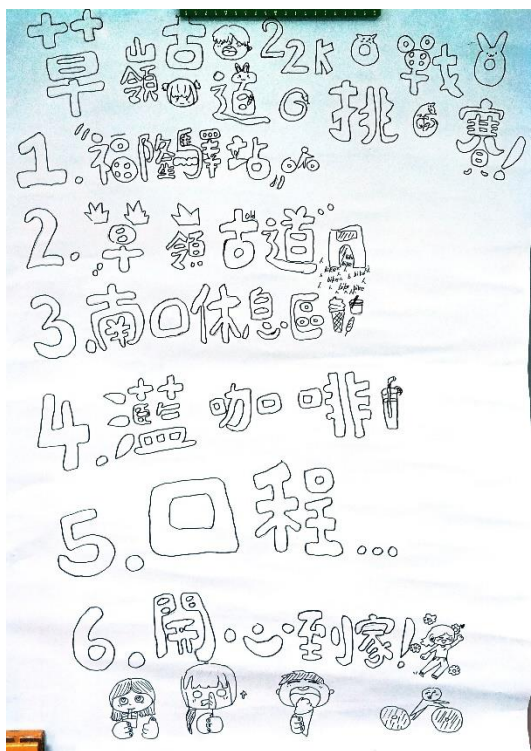 草嶺古道22K
挑戰賽!
1."福隆驛站"
2."草嶺古道"
3.南口休息區
4.灆咖啡
5.回程...
6.開心到家!